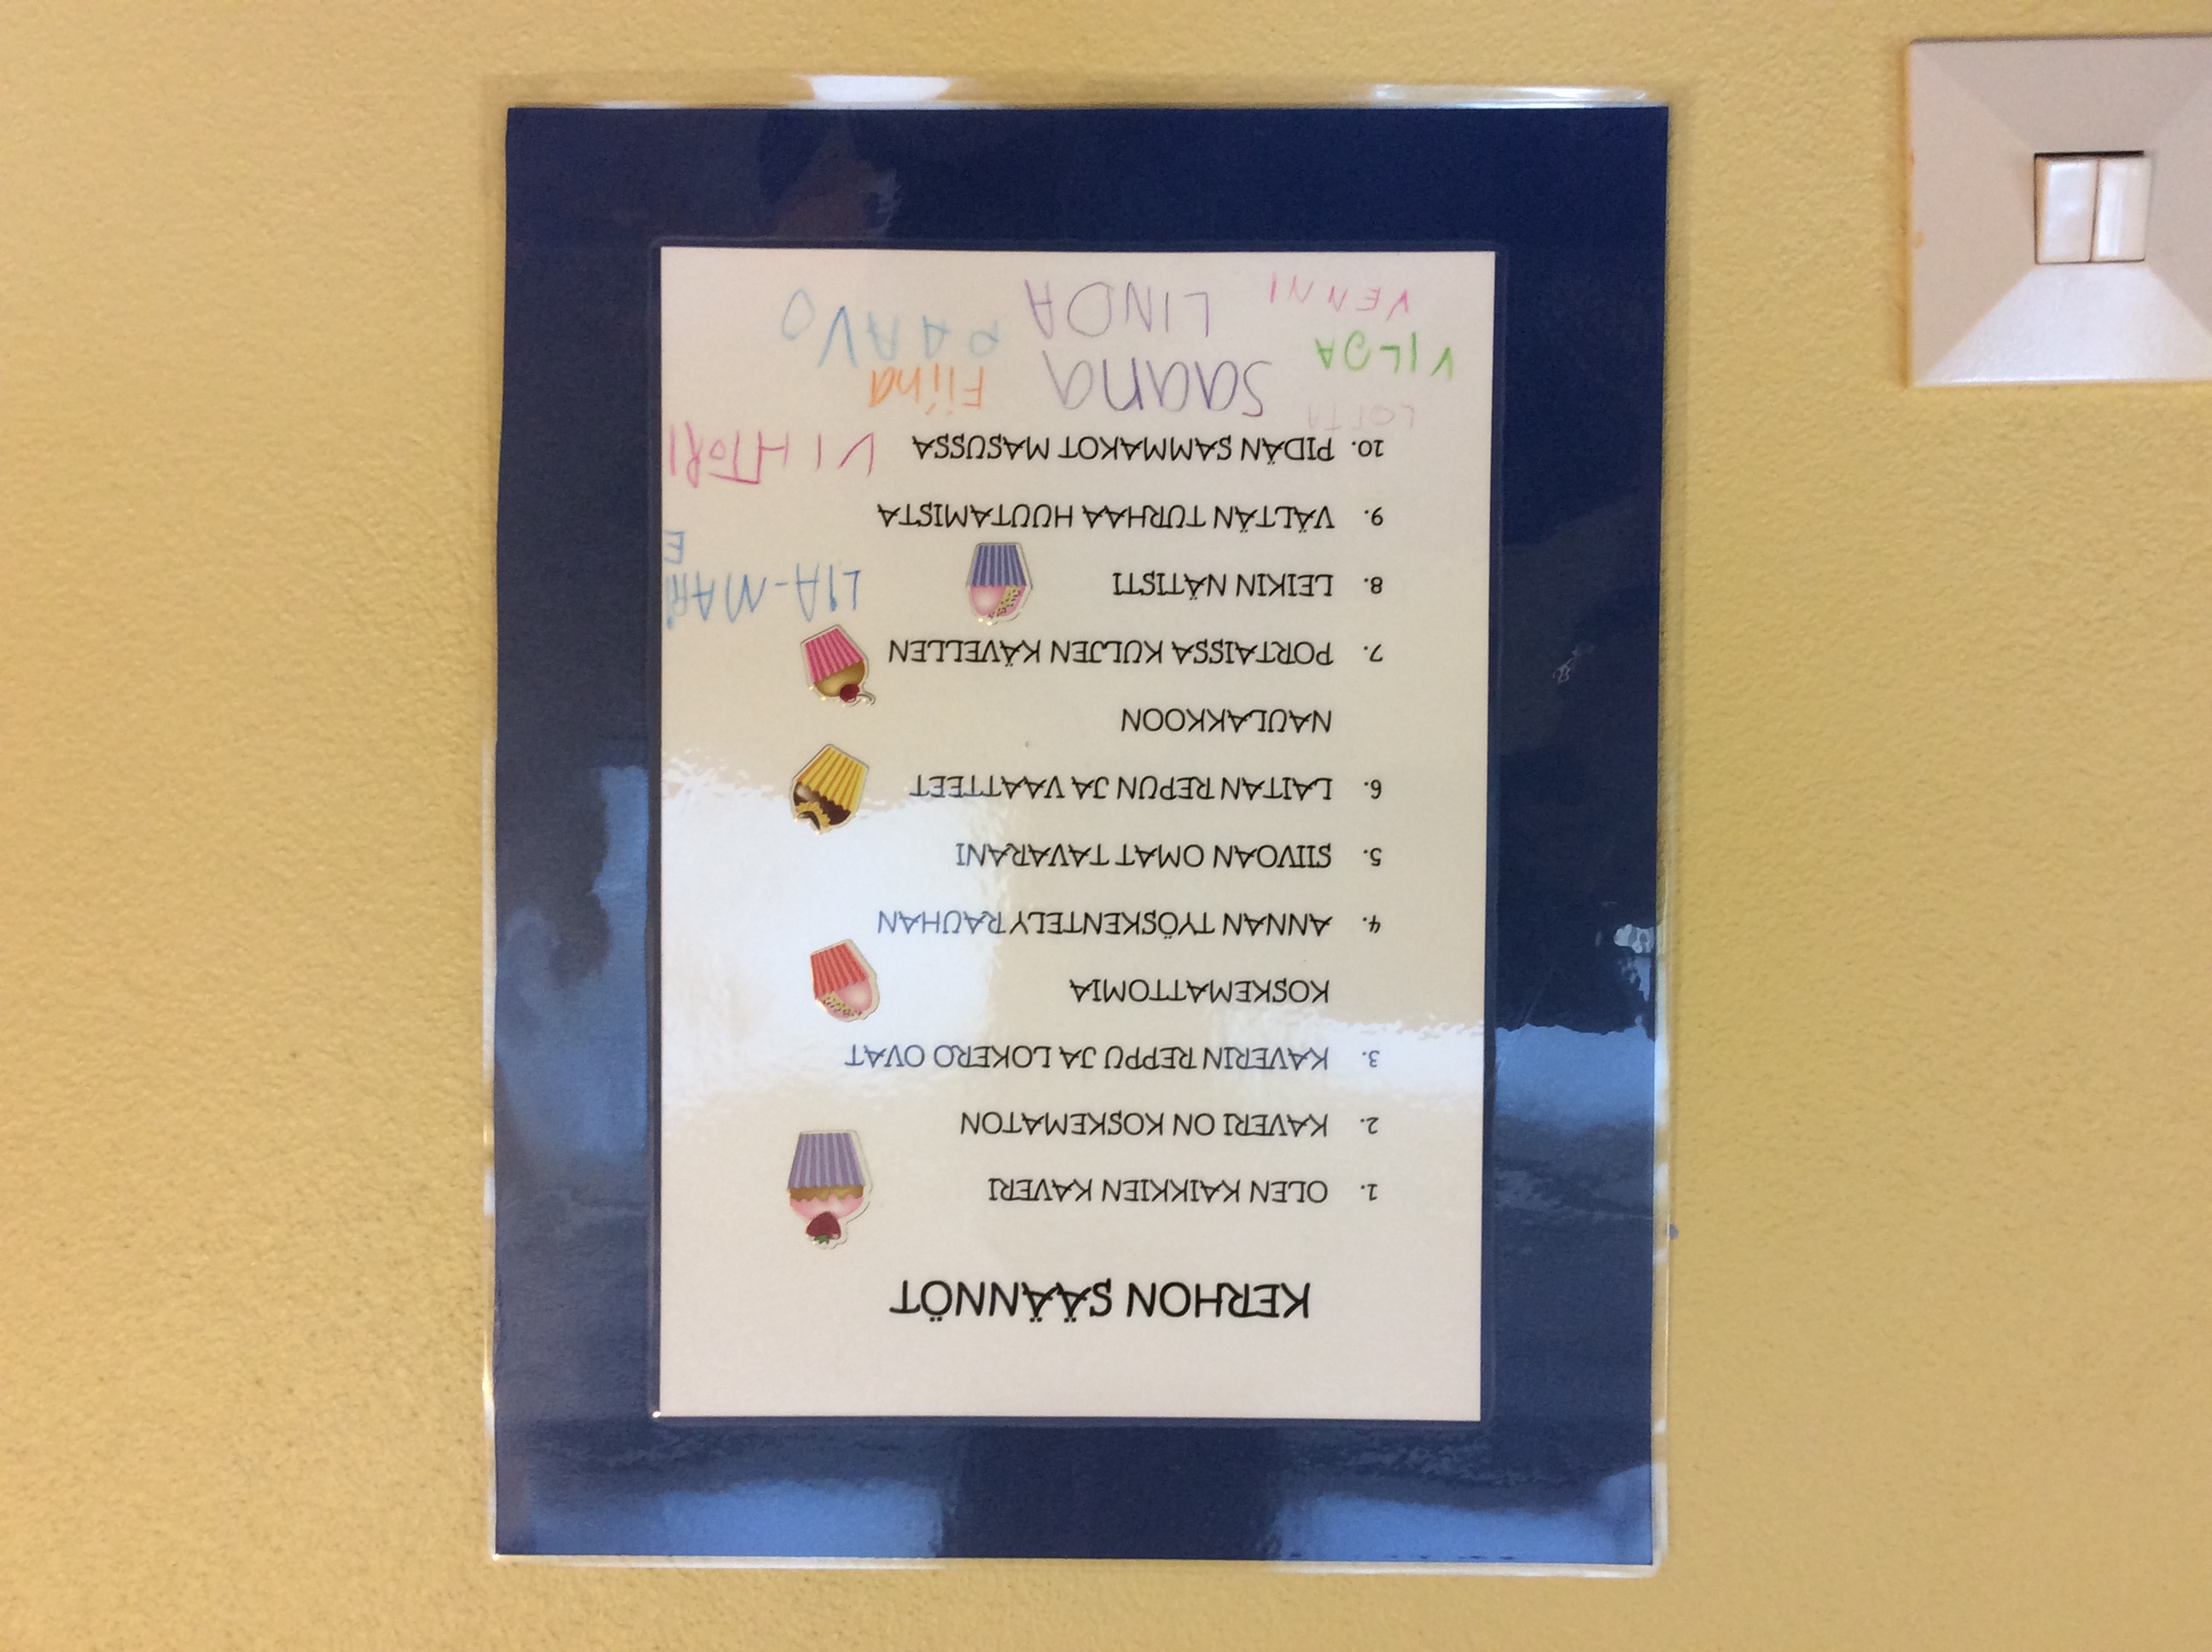 KERHON SÄÄNNÖT
1. OLEN KAIKKIEN KAVERI
2. KAVERI ON KOSKEMATON
3. KAVERIN REPPU JA LOKERO OVAT
KOSKEMATTOMIA
4. ANNAN TYÖSKENTELY RAUHAN
5. SIIVOAN OMAT TAVARANI
6. LAITAN REPUN JA VAATTEET
NAULAKKOON
7. PORTAISSA KULJEN KÄVELLEN
8. LEIKIN NÄTISTI
LIA-MARI
E
9. VÄLTÄN TURHAA HUUTAMISTA
10. PIDÄN SAMMAKOT MASUSSA
VIHTORI
LOTTA
Saana
Fiina
VILJA
PAAVO
VENNI
LINDA